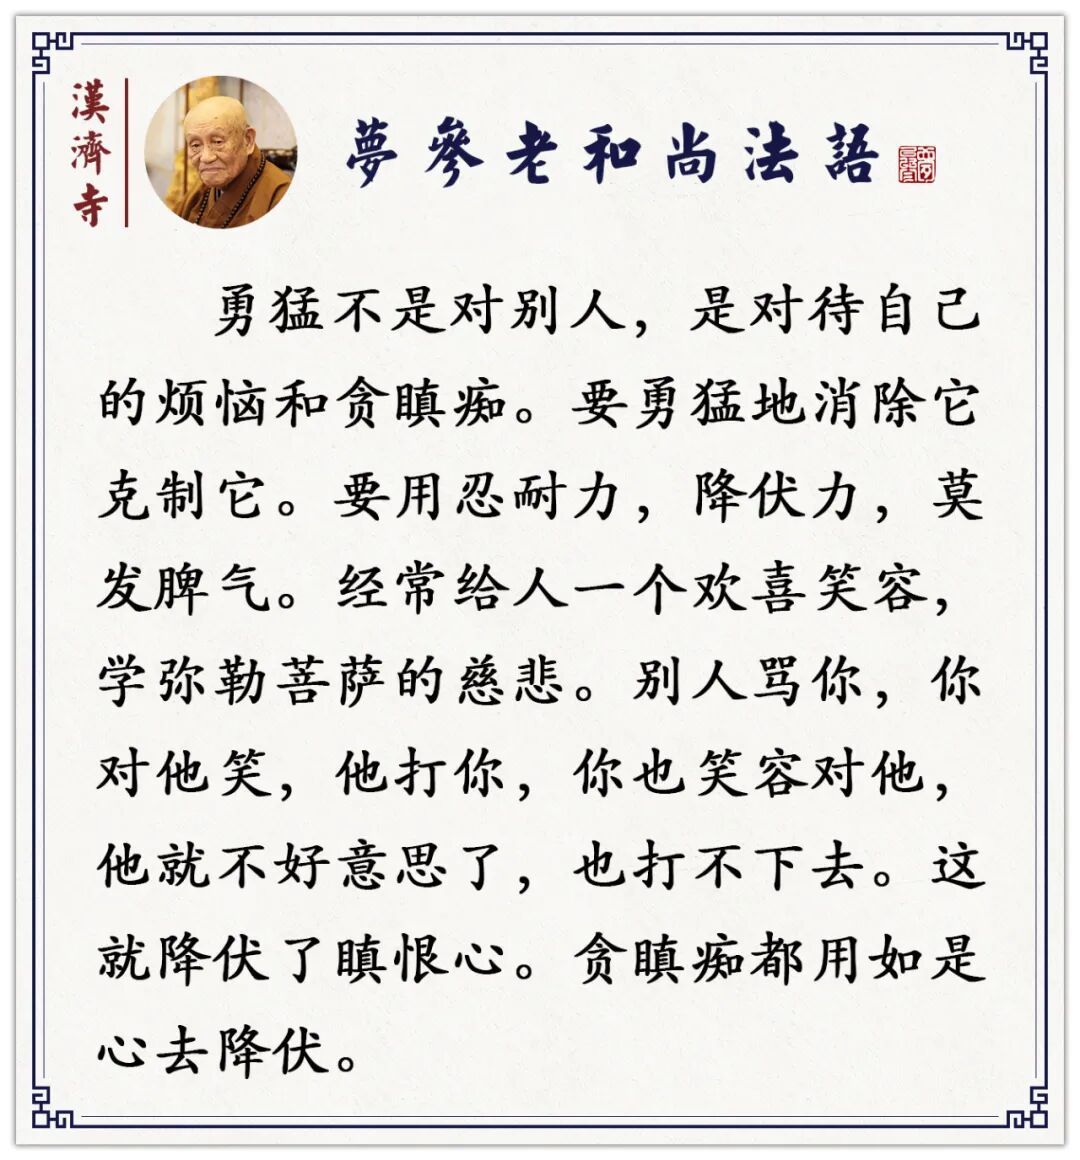 漢濟寺
夢參老和尚法語
勇猛不是对别人，是对待自己
的烦恼和贪瞋痴。要勇猛地消除它
克制它。要用忍耐力，降伏力，莫
发脾气。经常给人一个欢喜笑容，
学弥勒菩萨的慈悲。别人骂你，你
对他笑，他打你，你也笑容对他，
他就不好意思了，也打不下去。这
就降伏了瞋恨心。贪瞋痴都用如是
心去降伏。